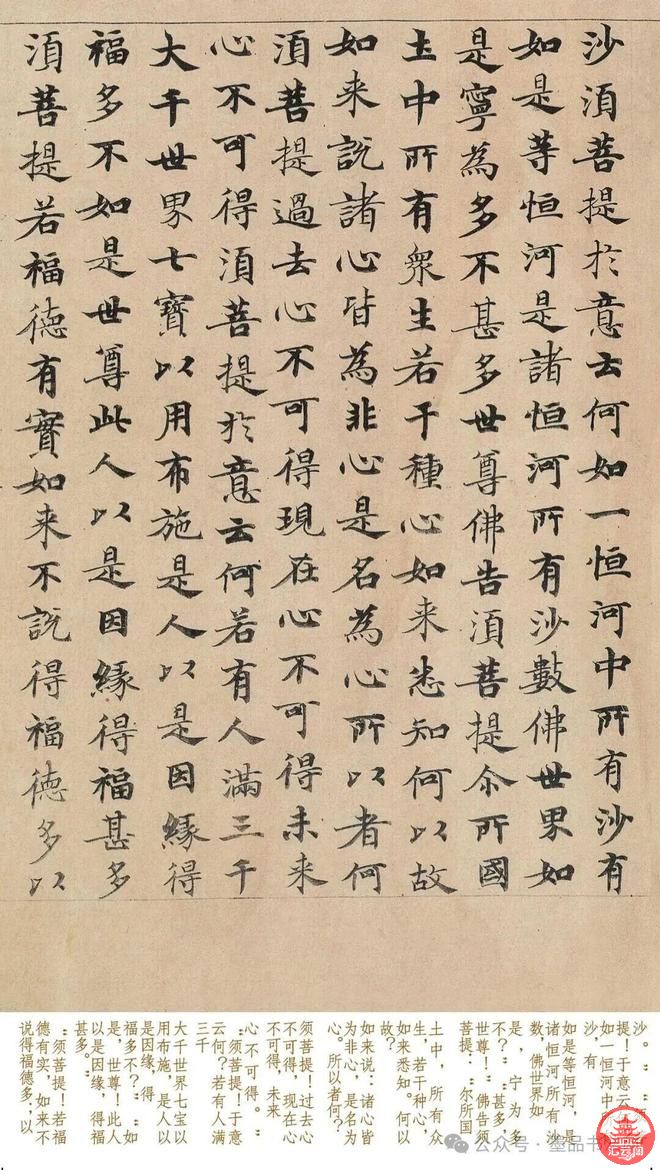 沙須菩提於意云何如一恒河中所有沙有
如是等恒河是諸恒河所有沙數佛世界如
是寧為多不甚多世尊佛告須菩提尒所國
土中所有衆生若干種心如来悉知何以故
如来說諸心皆為非心是名為心所以者何
須菩提過去心不可得現在心不可得未来
心不可得須菩提於意云何若有人滿三千
大千世界七寶以用布施是人以是因緣得
福多不如是世尊此人以是因緣得福甚多
須菩提若福德有實如来不說得福德多以
沙。”“
提！于意云
如一恒河中
沙，有
如是等恒河，是
诸恒河所有沙
数，佛世界如
是，宁为多
不？”“甚多，
世尊！”佛告须
菩提：“尔所国
土中，所有众
生，若干种心，
如来悉知。何以
故？
如来说：诸心皆
为非心，是名为
心。所以者何？
须菩提！过去心
不可得，现在心
不可得，未来
心不可得。”
“须菩提！于意
云何？若有人满
三千
大千世界七宝以
用布施，是人以
是因缘，得
福多不？”“如
是，世尊！此人
以是因缘，得福
甚多。”
“须菩提！若福
德有实，如来不
说得福德多；以
公众号 · 墨品书
汇云阁